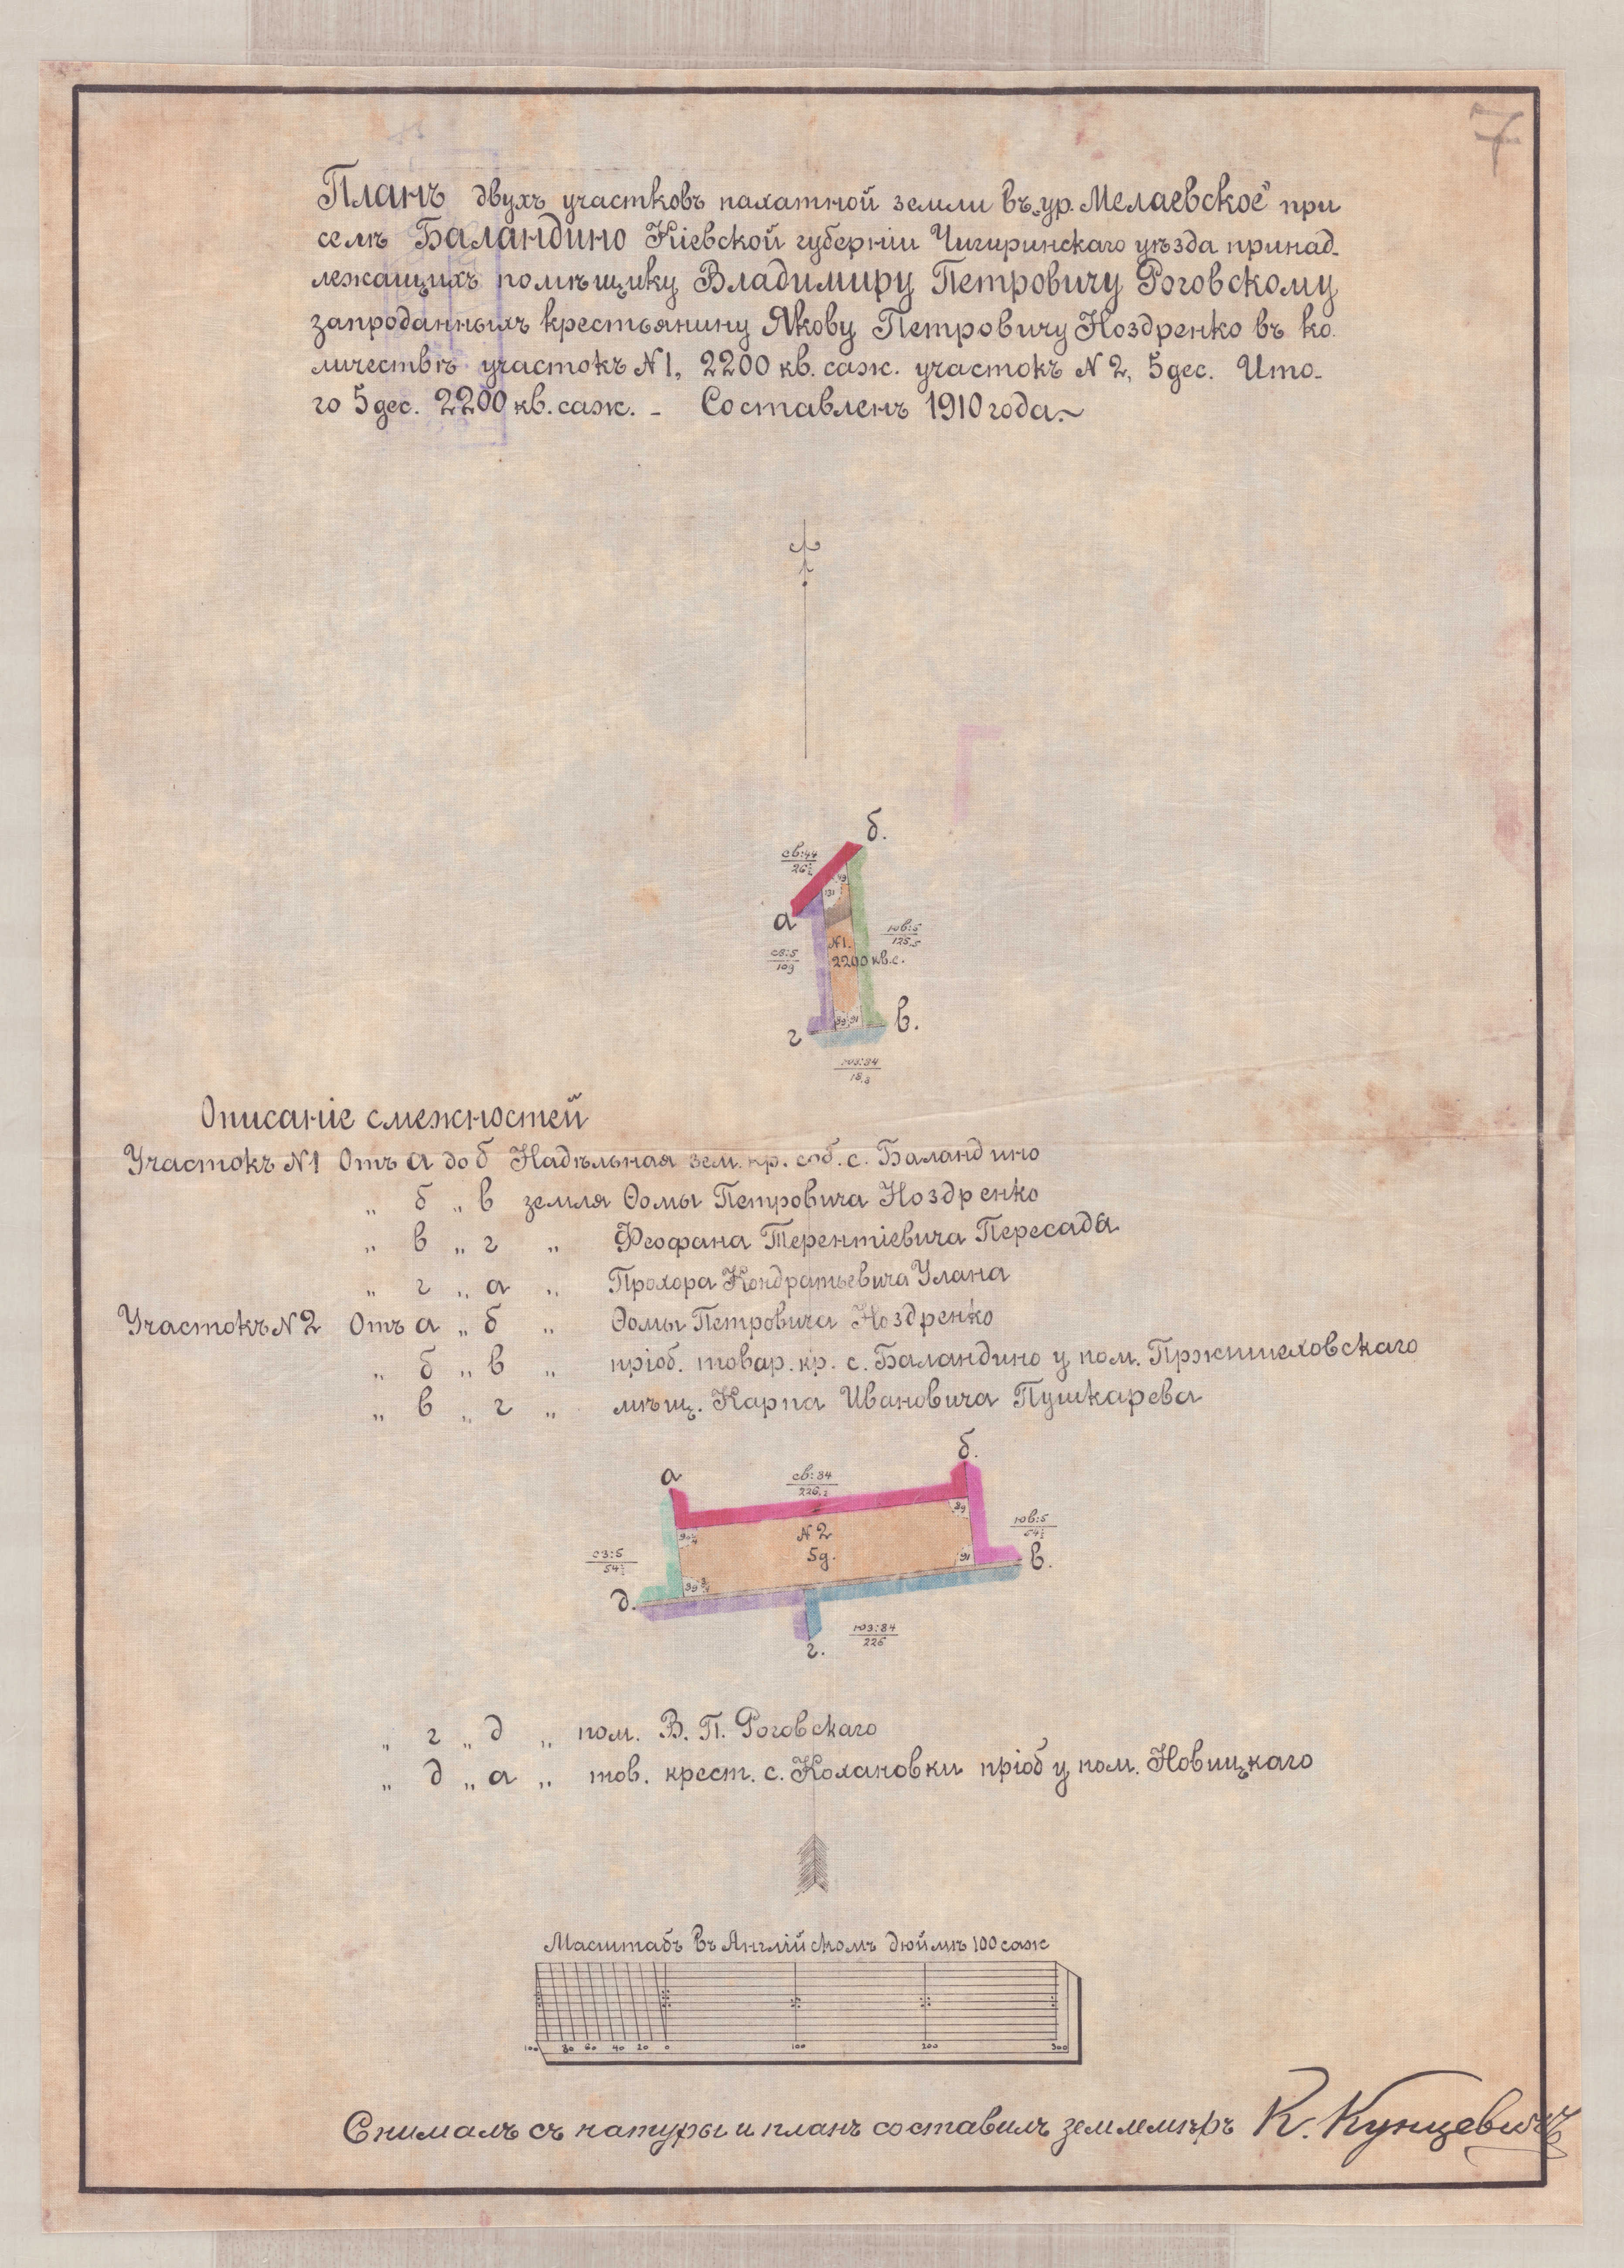 7
Планъ двухъ участковъ пахатной земли въ „ур. Мелаевское" при
селѣ Баландино Кіевской губерніи Чигиринскаго уѣзда принад-
лежащихъ помѣщику Владимиру Петровичу Роговскому
запроданныхъ крестьянину Якову Петровичу Ноздренко въ ко-
личествѣ участокъ N1, 2200 кв. саж. участокъ N 2, 5 дес. Ито-
го 5 дес. 2200 кв. саж. - Составленъ 1910 года ~
б.
св:44
26½
49
131
а
юв:5
125.5
N1.
св:5
109
2200 кв.с.
89 91
в.
г
юз:84
18.3
Описаніе смежностей
Участокъ N1 Отъ а до б Надѣльная зем. кр. соб. с. Баландино
„ б „ в земля Ѳомы Петровича Ноздренко
„ в „ г „ Феофана Терентіевича Пересада
„ г „ а „ Прохора Кондратьевича Улана
Участокъ N2 Отъ а „ б „ Ѳомы Петровича Ноздренко
„ б „ в „ пріоб. товар. кр. с. Баландино у пом. Пржишеховскаго
„ в „ г „ мѣщ. Карпа Ивановича Пушкарева
б.
а
св:84
226.2
89
юв:5
54½
N 2
5д.
90¼
91
в.
сз:5
54½
89¾
д.
юз:84
226
г.
„ г „ д „ пом. В. П. Роговскаго
„ д „ а „ тов. крест. с. Кохановки пріоб у пом. Новицкаго
Масштабъ въ Англійскомъ дюймѣ 100 саж
100 80 60 40 20 0 100 200 300
Снималъ съ натуры и планъ составилъ землемѣръ К. Кунцевичъ